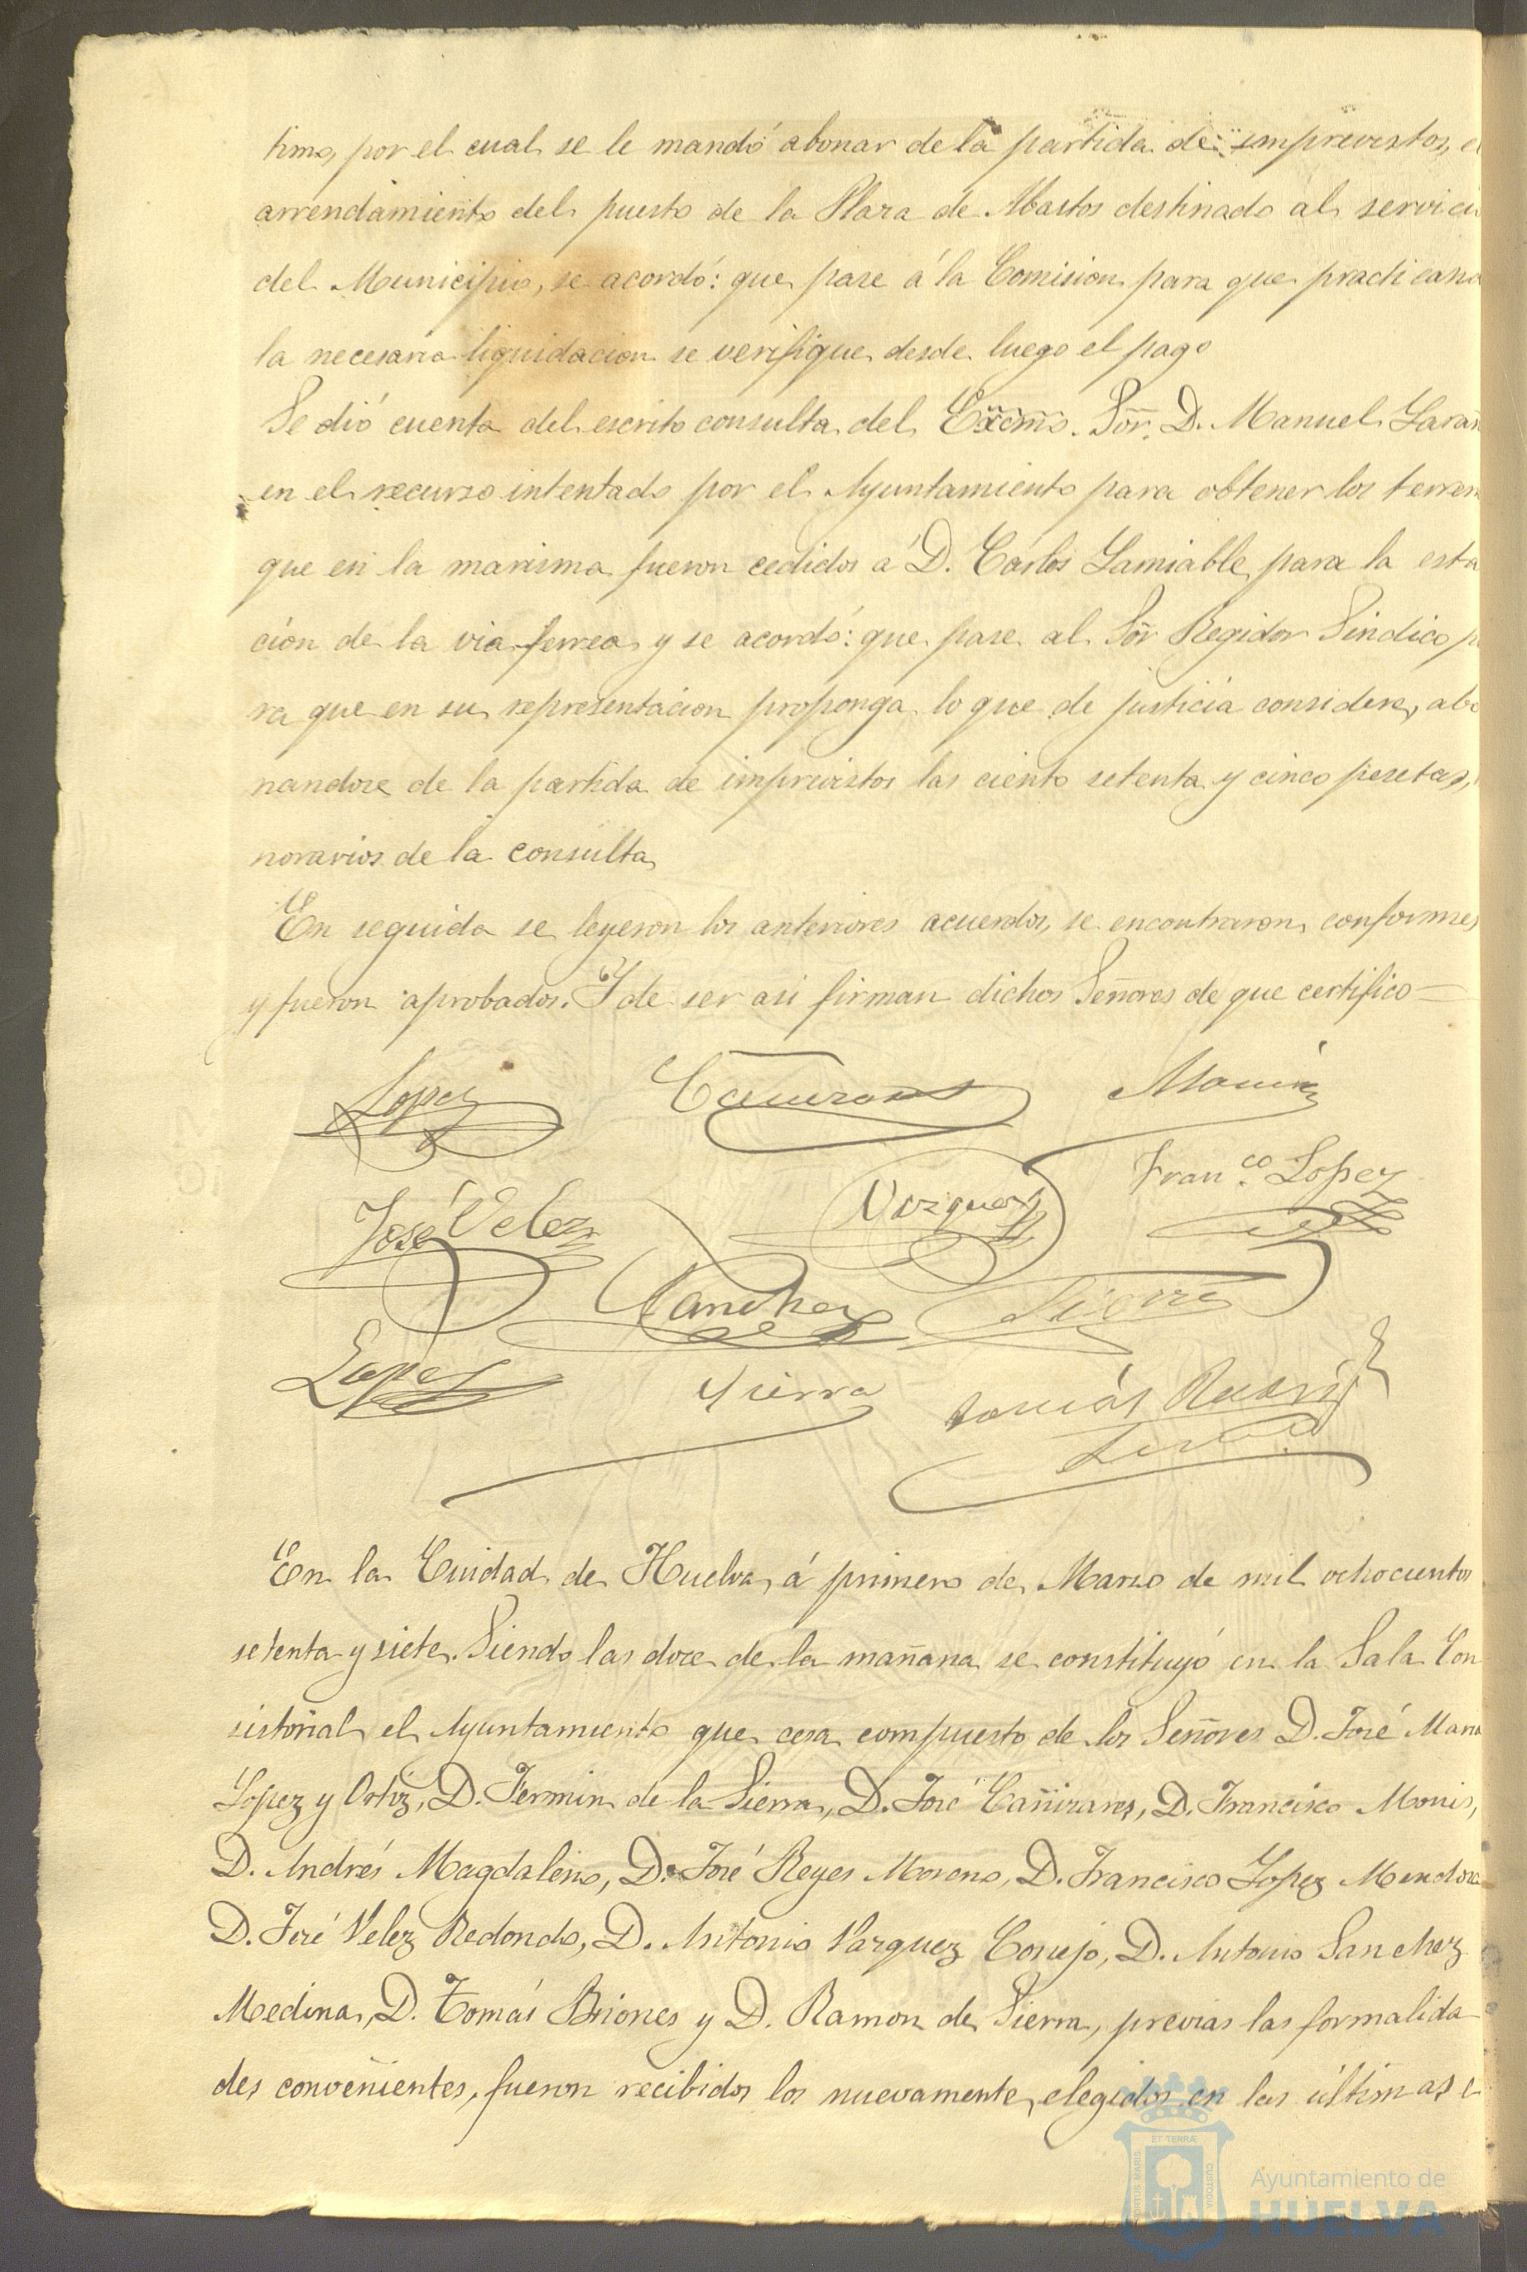 timo, por el cual se le mandó abonar de la partida de imprevistos, el
arrendamiento del puesto de la Plaza de Abastos destinado al servicio
del Municipio, se acordó: que pase á la Comision para que practicand
la necesaria liquidacion se verifique desde luego el pago
Se dió cuenta del escrito consulta del Excmo. Sõr. D. Manuel Larañ
en el recurso intentado por el Ayuntamiento para obtener los terren
que en la marisma fueron cedidos á D. Carlos Lamiable para la esta
cion de la via ferrea y se acordó: que pase al Sõr Regidor Sindico pa
ra que en su representacion proponga lo que de justicia considere, abo
nandose de la partida de imprevistos las ciento setenta y cinco pesetas,
norarios de la consulta
En seguida se leyeron los anteriores acuerdos, se encontraron conformes
y fueron aprobados. Y de ser asi firman dichos Señores de que certifico =
Lopez Cañizares Monis
José Velez Vazquez Fran.co Lopez
Sanchez Sierra
Lopez Sierra Tomás
En la Ciudad de Huelva, á primero de Marzo de mil ochocientos
setenta y siete. Siendo las doce de la mañana se constituyó en la Sala Con
sistorial el Ayuntamiento que cesa compuesto de los Señores D. José Maria
Lopez y Ortiz, D. Fermin de la Sierra, D. José Cañizares, D. Francisco Monis,
D. Andrés Magdaleno, D. José Reyes Moreno, D. Francisco Lopez Mendoza
D. José Velez Redondo, D. Antonio Vazquez Conejo, D. Antonio Sanchez
Medina, D. Tomás Briones y D. Ramon de Sierra, previas las formalida
des convenientes, fueron recibidos los nuevamente elegidos en las últimas e
ET TERRÆ
PORTUS MARIS
CUSTODIA
Ayuntamiento de
HUELVA